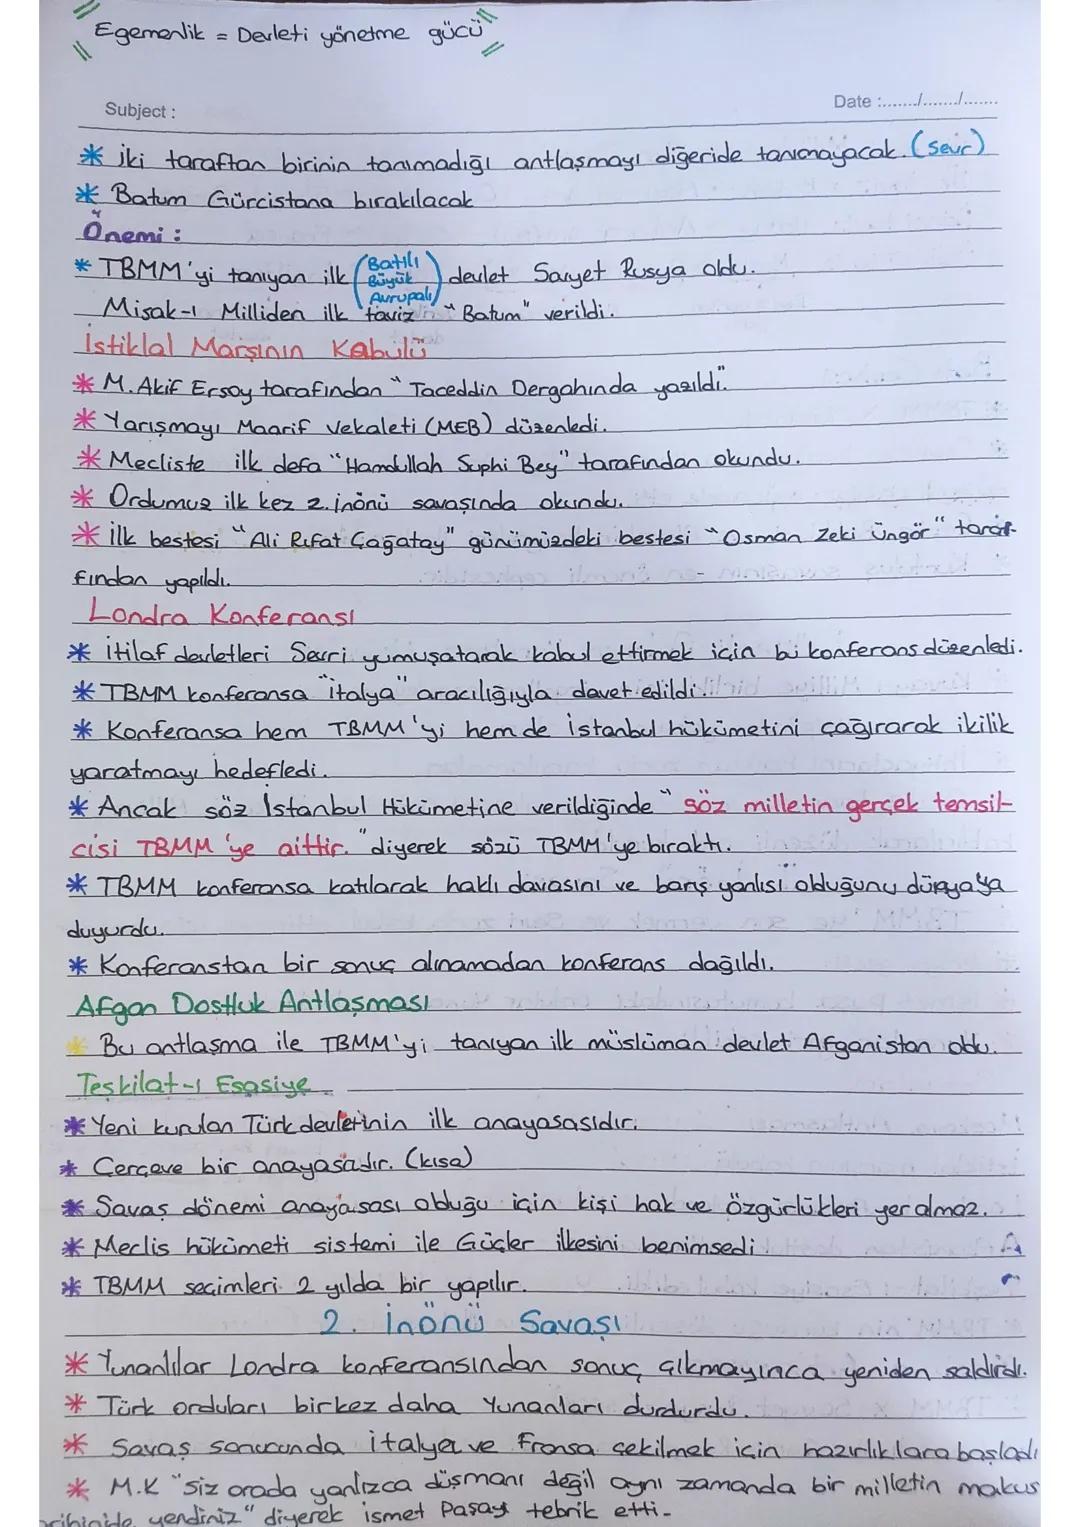 Egemenlik = Devleti yönetme gücü
Subject :
Date :......./......./.......
* İki taraftan birinin tanımadığı antlaşmayı diğeride tanımayacak. (Sevr)
* Batum Gürcistana bırakılacak
Önemi :
* TBMM'yi tanıyan ilk (Batılı Büyük Avrupalı) devlet Sovyet Rusya oldu.
Misak-ı Milliden ilk taviz "Batum" verildi.
İstiklal Marşının Kabulü
* M. Akif Ersoy tarafından "Taceddin Dergahında yazıldı."
* Yarışmayı Maarif Vekaleti (MEB) düzenledi.
* Mecliste ilk defa "Hamdullah Suphi Bey" tarafından okundu.
* Ordumuz ilk kez 2. inönü savaşında okundu.
* İlk bestesi "Ali Rıfat Çağatay" günümüzdeki bestesi "Osman Zeki Üngör" taraf-
fından yapıldı.
Londra Konferansı
* İtilaf devletleri Sevri yumuşatarak kabul ettirmek için bi konferans düzenledi.
* TBMM konferansa "italya" aracılığıyla davet edildi.
* Konferansa hem TBMM'yi hem de İstanbul hükümetini çağırarak ikilik
yaratmayı hedefledi.
* Ancak söz İstanbul Hükümetine verildiğinde "söz milletin gerçek temsil-
cisi TBMM'ye aittir." diyerek sözü TBMM'ye bıraktı.
* TBMM konferansa katılarak haklı davasını ve barış yanlısı olduğunu dünyaya
duyurdu.
* Konferanstan bir sonuç alınamadan konferans dağıldı.
Afgan Dostluk Antlaşması
* Bu antlaşma ile TBMM'yi tanıyan ilk müslüman devlet Afganistan oldu.
Teşkilat-ı Esasiye
* Yeni kurulan Türk devletinin ilk anayasasıdır.
* Çerçeve bir anayasadır. (kısa)
* Savaş dönemi anayasası olduğu için kişi hak ve özgürlükleri yer almaz.
* Meclis hükümeti sistemi ile Güçler ilkesini benimsedi.
* TBMM seçimleri 2 yılda bir yapılır.
2. İnönü Savaşı
* Yunanlılar Londra konferansından sonuç çıkmayınca yeniden saldırdı.
* Türk orduları birkez daha Yunanları durdurdu.
* Savaş sonucunda italya ve Fransa çekilmek için hazırlıklara başladı
* M.K "Siz orada yanlızca düşmanı değil aynı zamanda bir milletin makus
yendiniz" diyerek ismet Paşayı tebrik etti.